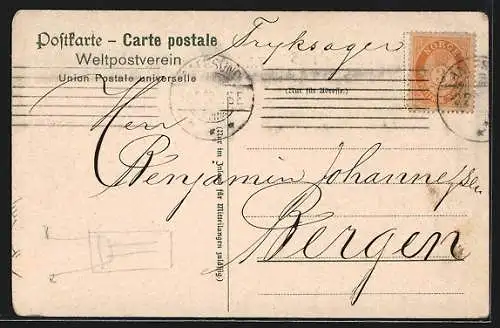 Postkarte – Carte postale
Weltpostverein
Union Postale universelle
Tryksager
NORGE
(Nur für Adresse.)
Herr
Benjamin Johannessen
Bergen
(Nur im Inland für Mitteilungen gültig)